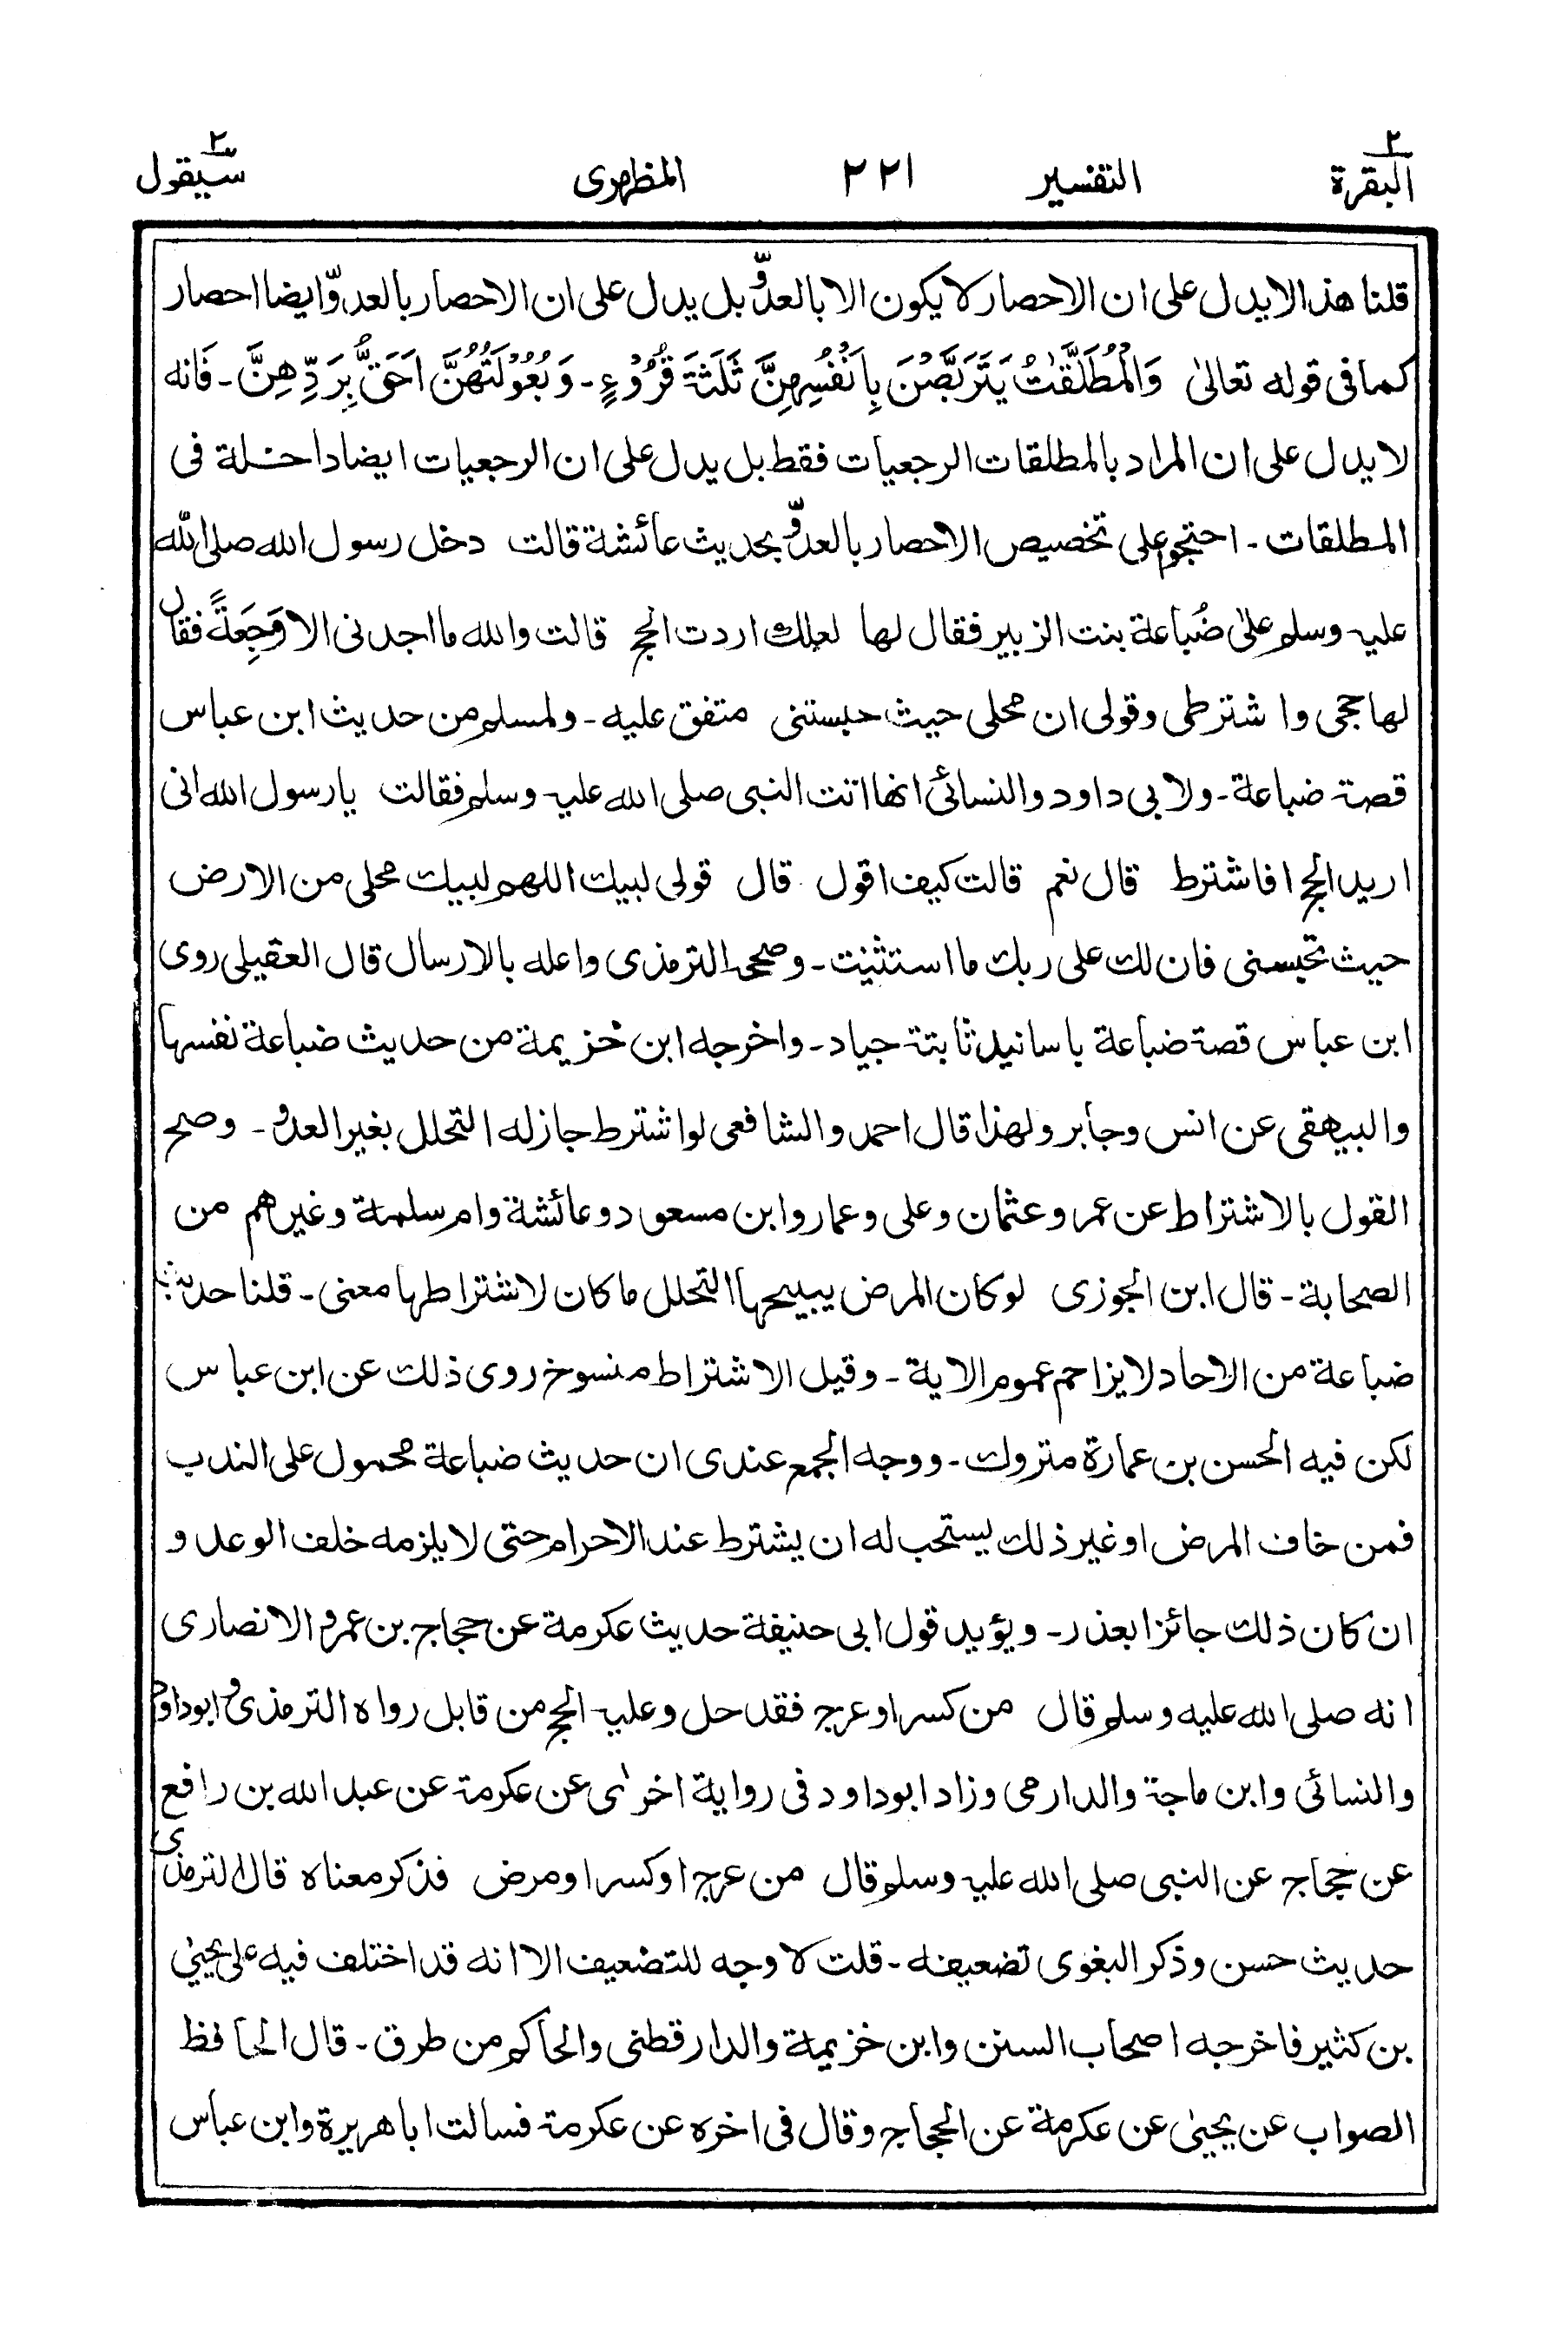 ٢ البقرة التفسير ٢٢١ المظهرى ٢ سيقول
قلنا هذا لا يدل على ان الاحصار لا يكون الا بالعدوّ بل يدل على ان الاحصار بالعدوّ ايضا احصار
كما فى قوله تعالىٰ وَالْمُطَلَّقٰتُ يَتَرَبَّصْنَ بِاَنْفُسِهِنَّ ثَلٰثَةَ قُرُوْٓءٍ - وَبُعُوْلَتُهُنَّ اَحَقُّ بِرَدِّهِنَّ - فَانه
لا يدل على ان المراد بالمطلقات الرجعيات فقط بل يدل على ان الرجعيات ايضا داخلة فى
المطلقات - احتجوا على تخصيص الاحصار بالعدوّ بحديث عائشة قالت دخل رسول الله صلى الله
عليه وسلم علىٰ ضُباعة بنت الزبير فقال لها لعلك اردت الحج قالت والله ما اجدنى الا وَجِعَةً فقال
لها حجى واشترطى وقولى ان محلى حيث حبستنى متفق عليه - ولمسلم من حديث ابن عباس
قصة ضباعة - ولابى داود والنسائى انها اتت النبى صلى الله عليه وسلم فقالت يا رسول الله انى
اريد الحج افاشترط قال نعم قالت كيف اقول قال قولى لبيك اللهم لبيك محلى من الارض
حيث تحبسنى فان لك على ربك ما استثنيت - وصححه الترمذى واعله بالارسال قال العقيلى روى
ابن عباس قصة ضباعة باسانيد ثابتة جياد - واخرجه ابن خزيمة من حديث ضباعة نفسها
والبيهقى عن انس وجابر ولهذا قال احمد والشافعى لو اشترط جاز له التحلل بغير العدو - وصح
القول بالاشتراط عن عمر وعثمان وعلى وعمار وابن مسعود وعائشة وام سلمة وغيرهم من
الصحابة - قال ابن الجوزى لو كان المرض يبيحها التحلل ما كان لاشتراطها معنى - قلنا حديث
ضباعة من الاحاد لا يزاحم عموم الاية - وقيل الاشتراط منسوخ روى ذلك عن ابن عباس
لكن فيه الحسن بن عمارة متروك - ووجه الجمع عندى ان حديث ضباعة محمول على الندب
فمن خاف المرض او غير ذلك يستحب له ان يشترط عند الاحرام حتى لا يلزمه خلف الوعد و
ان كان ذلك جائزا بعذر - ويؤيد قول ابى حنيفة حديث عكرمة عن حجاج بن عمرو الانصارى
انه صلى الله عليه وسلم قال من كسر او عرج فقد حل وعليه الحج من قابل رواه الترمذى وابو داود
والنسائى وابن ماجة والدارمى وزاد ابو داود فى رواية اخرٰى عن عكرمة عن عبد الله بن رافع
عن حجاج عن النبى صلى الله عليه وسلم قال من عرج او كسر او مرض فذكر معناه قال الترمذى
حديث حسن وذكر البغوى تضعيفه - قلت لا وجه للتضعيف الا انه قد اختلف فيه على يحيىٰ
بن كثير فاخرجه اصحاب السنن وابن خزيمة والدار قطنى والحاكم من طرق - قال الحافظ
الصواب عن يحيىٰ عن عكرمة عن الحجاج وقال فى اخره عن عكرمة فسالت ابا هريرة وابن عباس